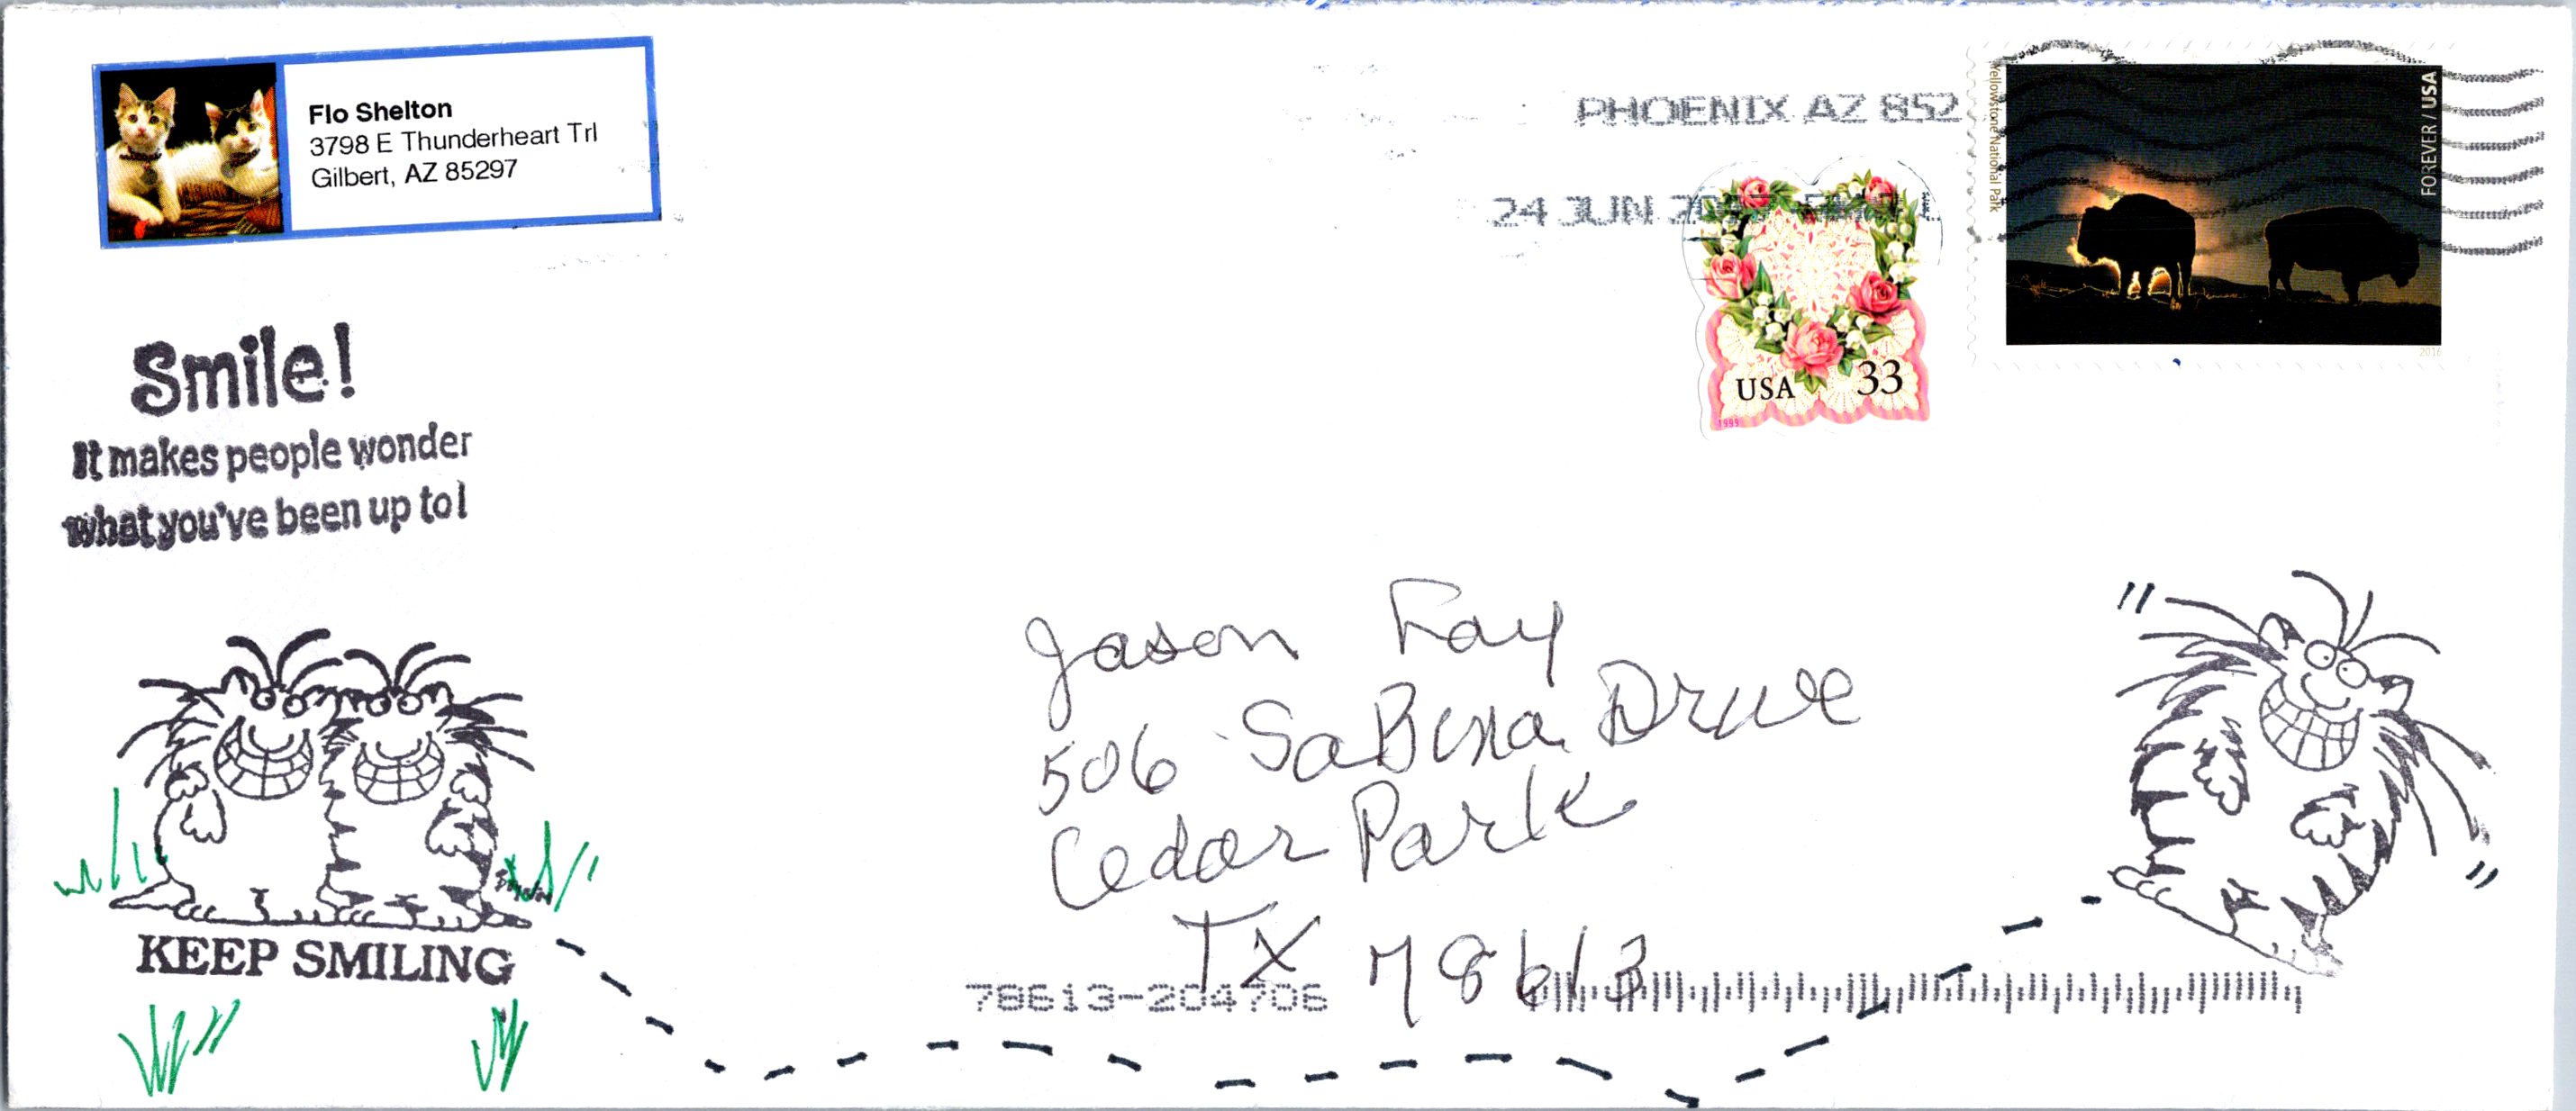 Flo Shelton
3798 E Thunderheart Trl
Gilbert, AZ 85297
PHOENIX AZ 852
24 JUN
Yellowstone National Park
FOREVER / USA
2016
USA 33
1999
Smile!
It makes people wonder
what you've been up to!
Jason Fay
506 SaBina Drive
Cedar Park
TX 78613
KEEP SMILING
78613-204706